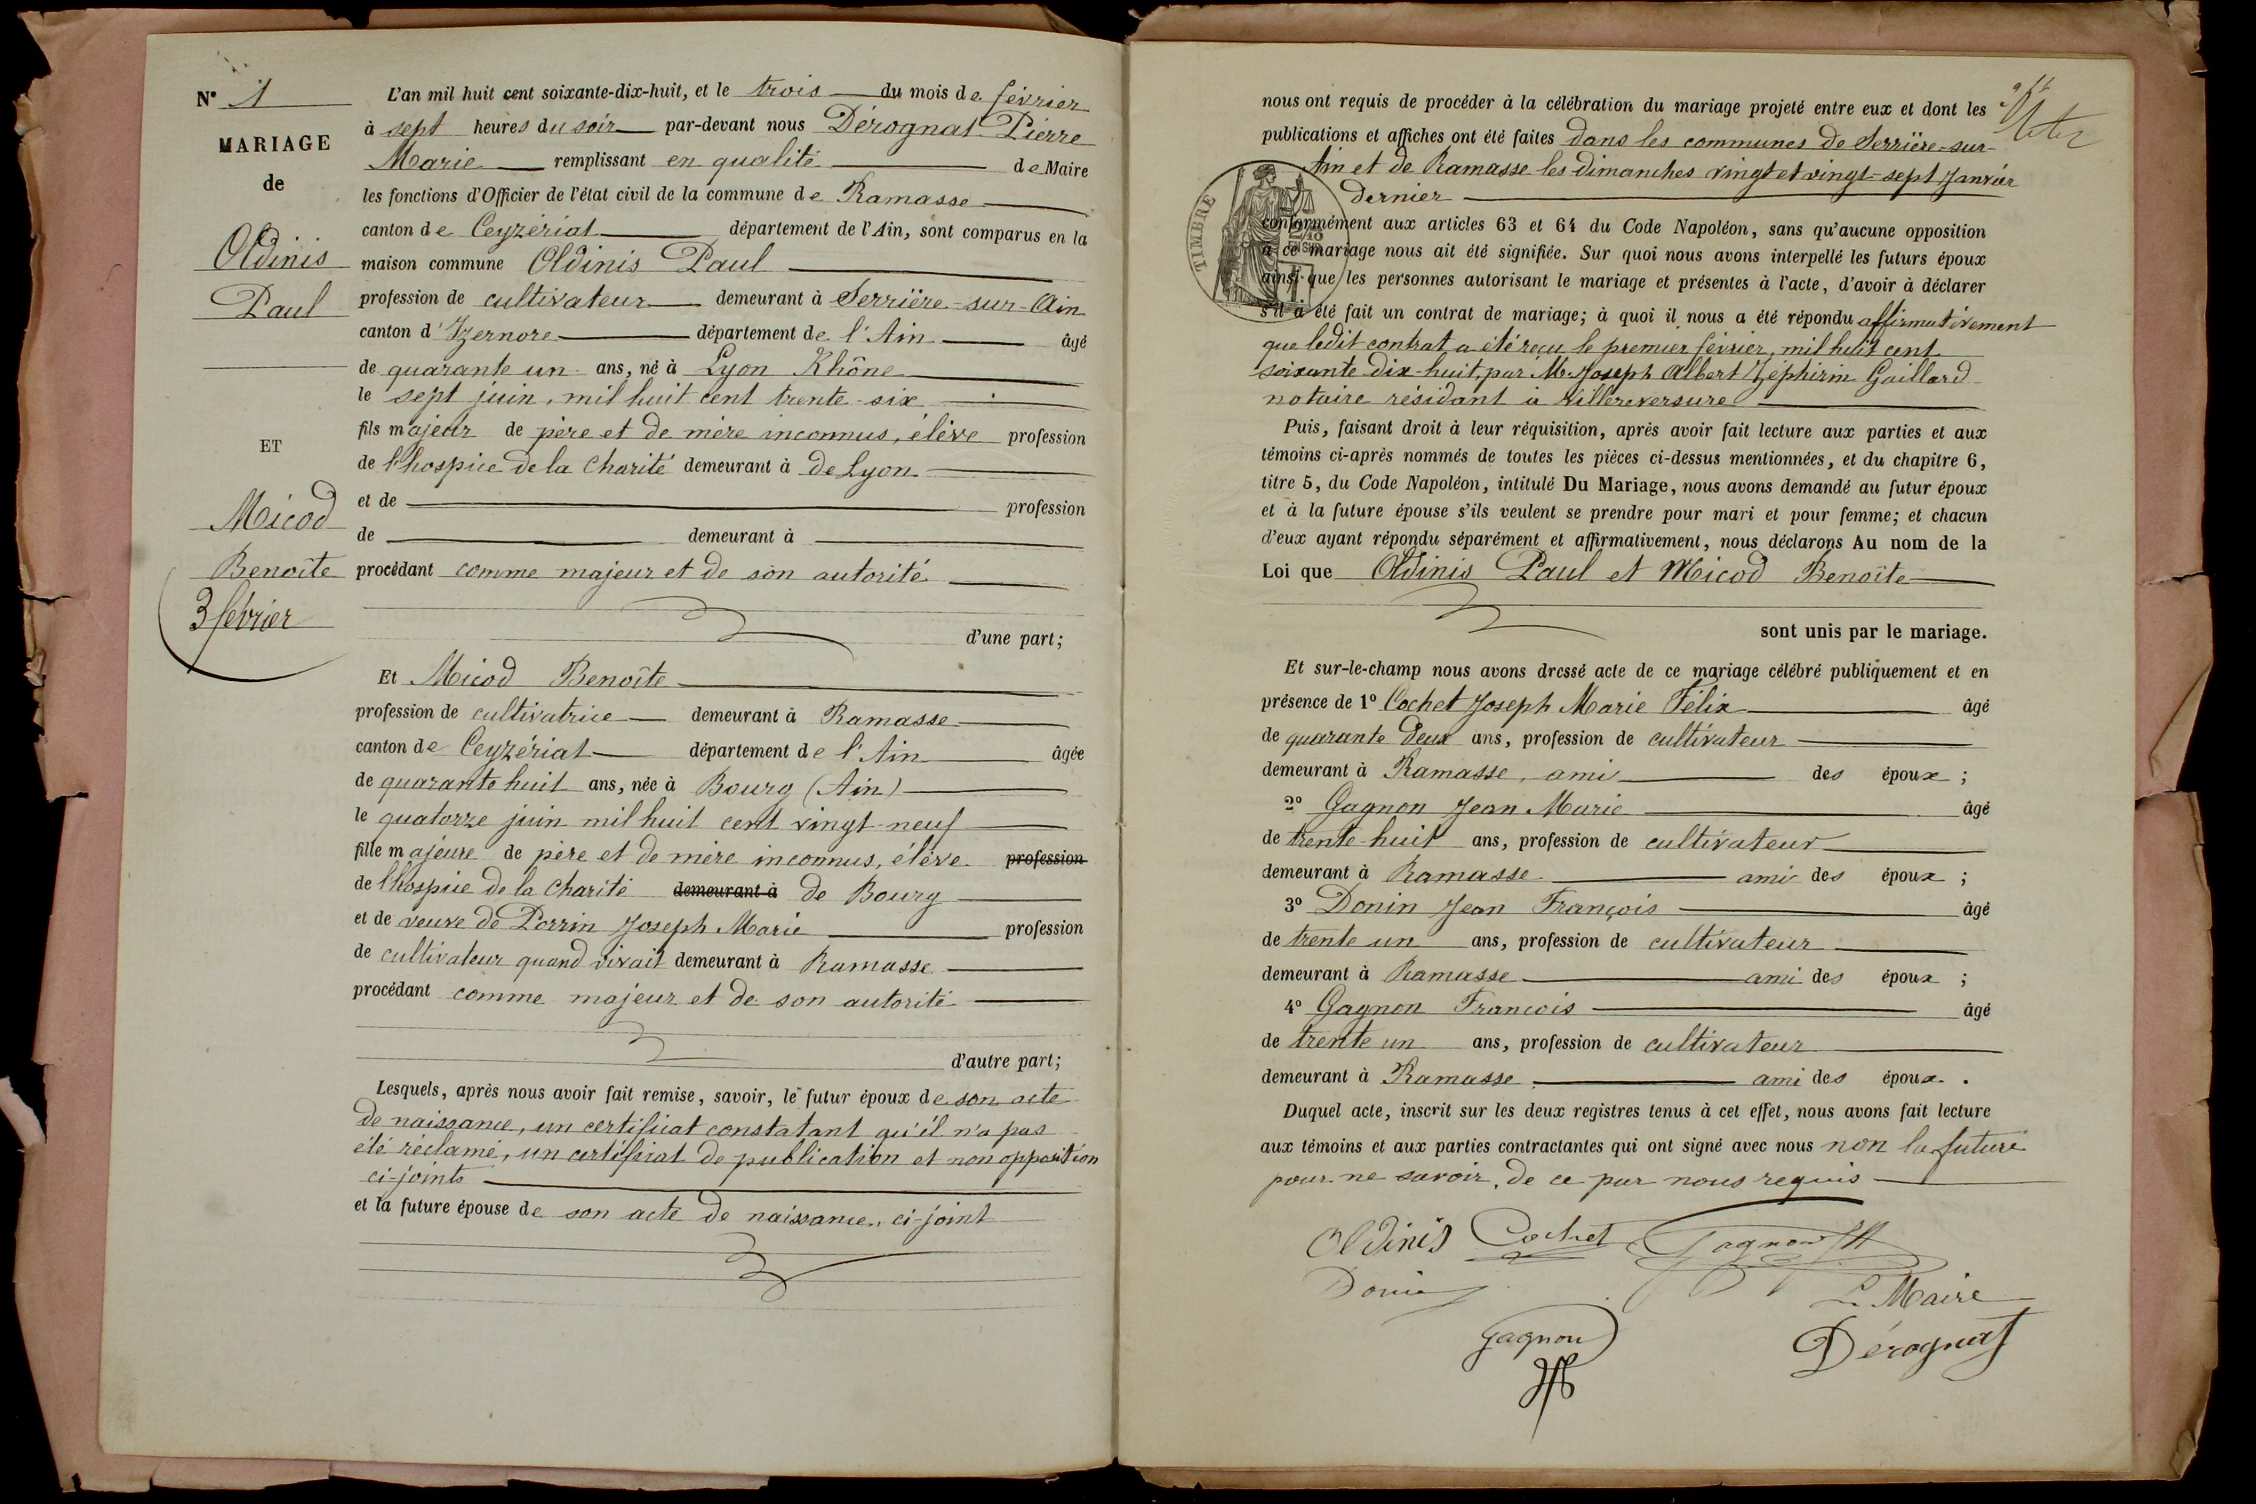 N° 1
MARIAGE
de
Oldinis
Paul
ET
Micod
Benoîte
3 février
L'an mil huit cent soixante-dix-huit, et le trois du mois de février
à sept heures du soir par-devant nous Dérognat Pierre
Marie remplissant en qualité de Maire
les fonctions d'Officier de l'état civil de la commune de Ramasse
canton de Ceyzériat département de l'Ain, sont comparus en la
maison commune Oldinis Paul
profession de cultivateur demeurant à Serrière-sur-Ain
canton d'Izernore département de l'Ain âgé
de quarante un ans, né à Lyon Rhône
le sept juin, mil huit cent trente-six
fils majeur de père et de mère inconnus, élève profession
de l'hospice de la Charité demeurant à de Lyon
et de profession
de demeurant à
procédant comme majeur et de son autorité
d'une part;
Et Micod Benoîte
profession de cultivatrice demeurant à Ramasse
canton de Ceyzériat département de l'Ain âgée
de quarante huit ans, née à Bourg (Ain)
le quatorze juin mil huit cent vingt-neuf
fille majeure de père et de mère inconnus, élève profession
de l'hospice de la Charité demeurant à de Bourg
et de veuve de Perrin Joseph Marie profession
de cultivateur quand vivait demeurant à Ramasse
procédant comme majeur et de son autorité
d'autre part;
Lesquels, après nous avoir fait remise, savoir, le futur époux de son acte
de naissance, un certificat constatant qu'il n'a pas
été réclamé, un certificat de publication et non opposition
ci-joints
et la future épouse de son acte de naissance, ci-joint
nous ont requis de procéder à la célébration du mariage projeté entre eux et dont les
publications et affiches ont été faites dans les communes de Serrière-sur-
Ain et de Ramasse les dimanches vingt et vingt-sept Janvier
dernier
TIMBRE
conformément aux articles 63 et 64 du Code Napoléon, sans qu'aucune opposition
à ce mariage nous ait été signifiée. Sur quoi nous avons interpellé les futurs époux
ainsi que les personnes autorisant le mariage et présentes à l'acte, d'avoir à déclarer
s'il a été fait un contrat de mariage; à quoi il nous a été répondu affirmativement
que ledit contrat a été reçu le premier février, mil huit cent
soixante-dix-huit, par Me Joseph Albert Zéphirin Gaillard
notaire résidant à Villereversure
Puis, faisant droit à leur réquisition, après avoir fait lecture aux parties et aux
témoins ci-après nommés de toutes les pièces ci-dessus mentionnées, et du chapitre 6,
titre 5, du Code Napoléon, intitulé Du Mariage, nous avons demandé au futur époux
et à la future épouse s'ils veulent se prendre pour mari et pour femme; et chacun
d'eux ayant répondu séparément et affirmativement, nous déclarons Au nom de la
Loi que Oldinis Paul et Micod Benoîte
sont unis par le mariage.
Et sur-le-champ nous avons dressé acte de ce mariage célébré publiquement et en
présence de 1° Cochet Joseph Marie Félix âgé
de quarante deux ans, profession de cultivateur
demeurant à Ramasse, ami des époux ;
2° Gagnon Jean Marie âgé
de trente-huit ans, profession de cultivateur
demeurant à Ramasse ami des époux ;
3° Donin Jean François âgé
de trente un ans, profession de cultivateur
demeurant à Ramasse ami des époux ;
4° Gagnon François âgé
de trente un ans, profession de cultivateur
demeurant à Ramasse ami des époux .
Duquel acte, inscrit sur les deux registres tenus à cet effet, nous avons fait lecture
aux témoins et aux parties contractantes qui ont signé avec nous non la future
pour ne savoir, de ce par nous requis
Oldinis Cochet Gagnon
Donin
Le Maire
Gagnon
Dérognat